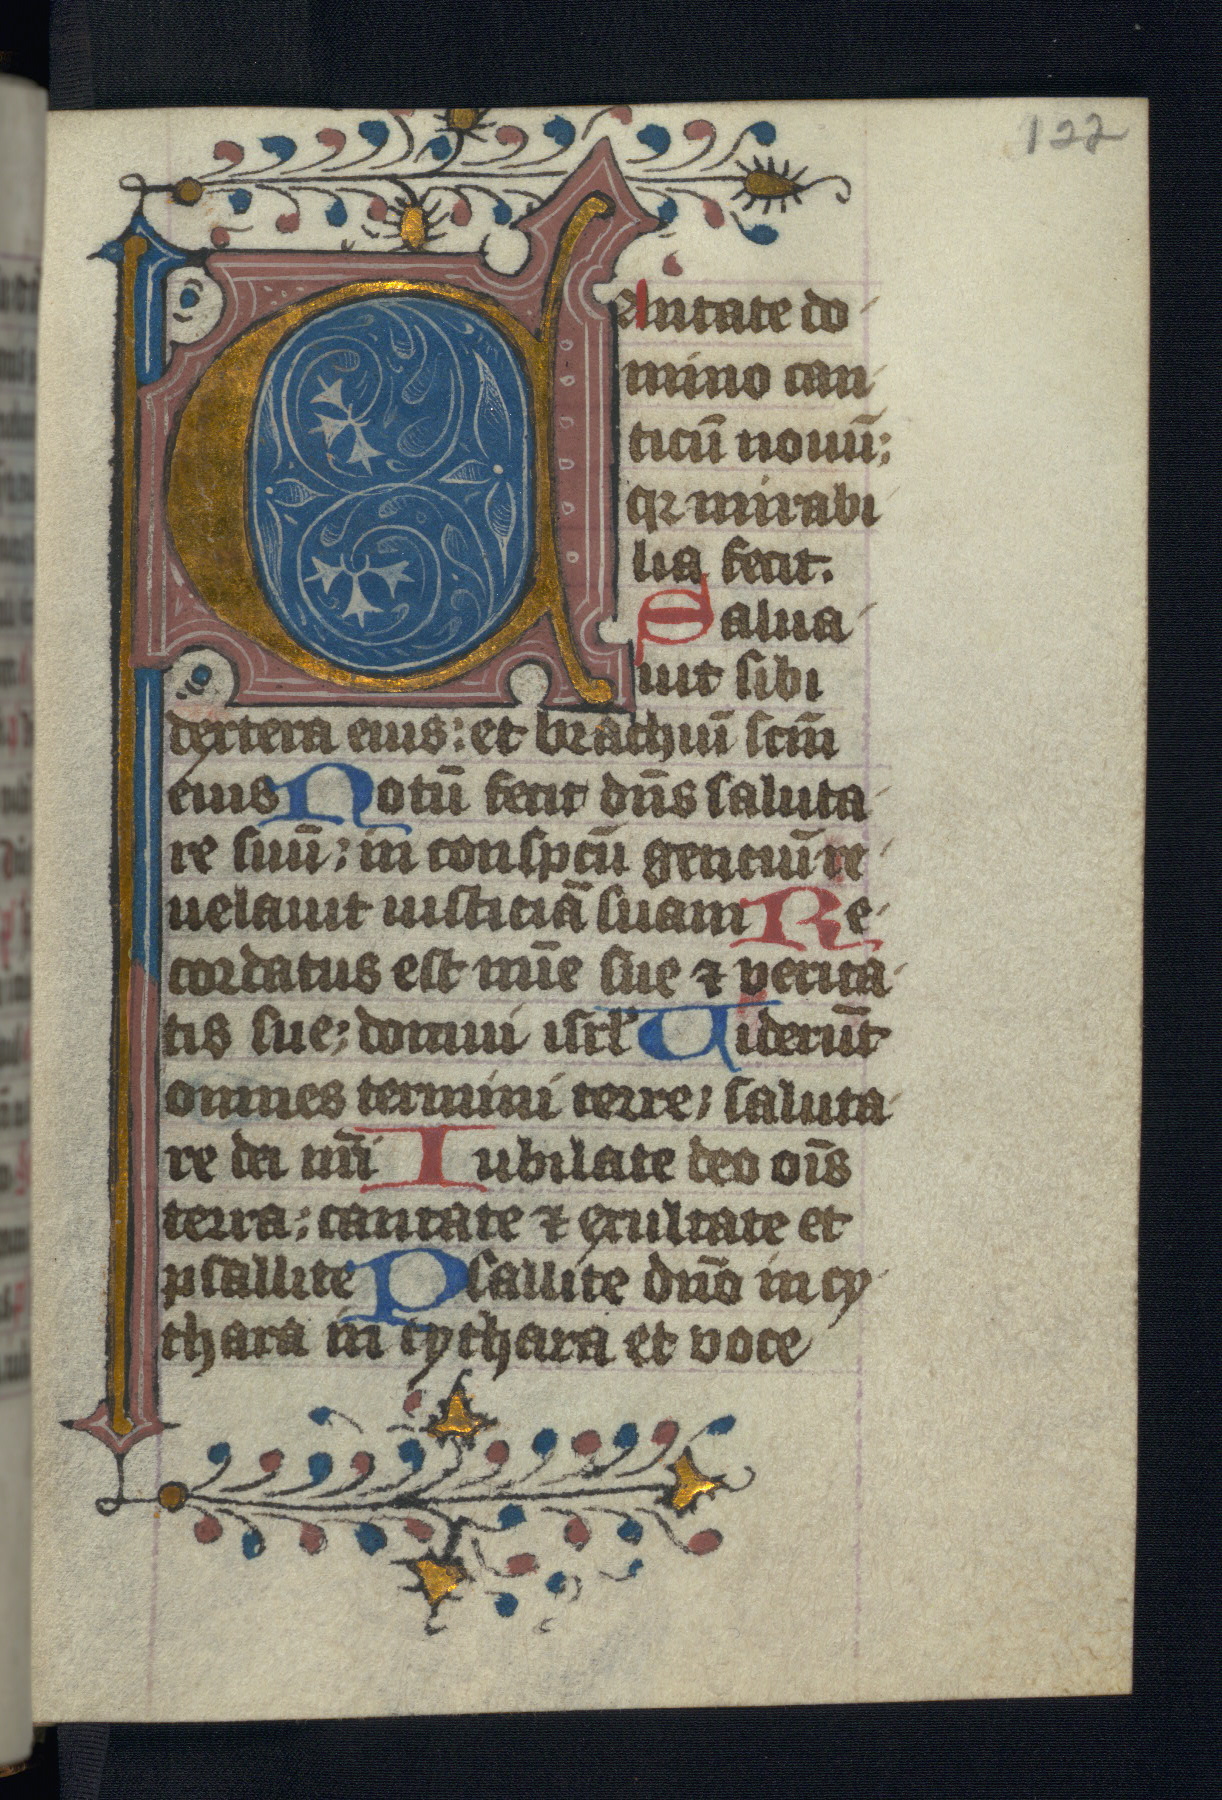 122
Cantate do
mino can
ticū nouū;
qr mirabi
lia fecit.
Salua
uit sibi
dextera eius: et brachiū scm̄
eius Notū fecit dn̄s saluta
re suū; in conspcū genciū re
uelauit iusticiā suam Re
cordatus est mīe sue ⁊ verita
tis sue; domui isrl' Uiderūt
omnes termini terre; saluta
re dei nr̄i Iubilate deo oīs
terra; cantate ⁊ exultate et
psallite Psallite dn̄o in cy
thara in cythara et voce